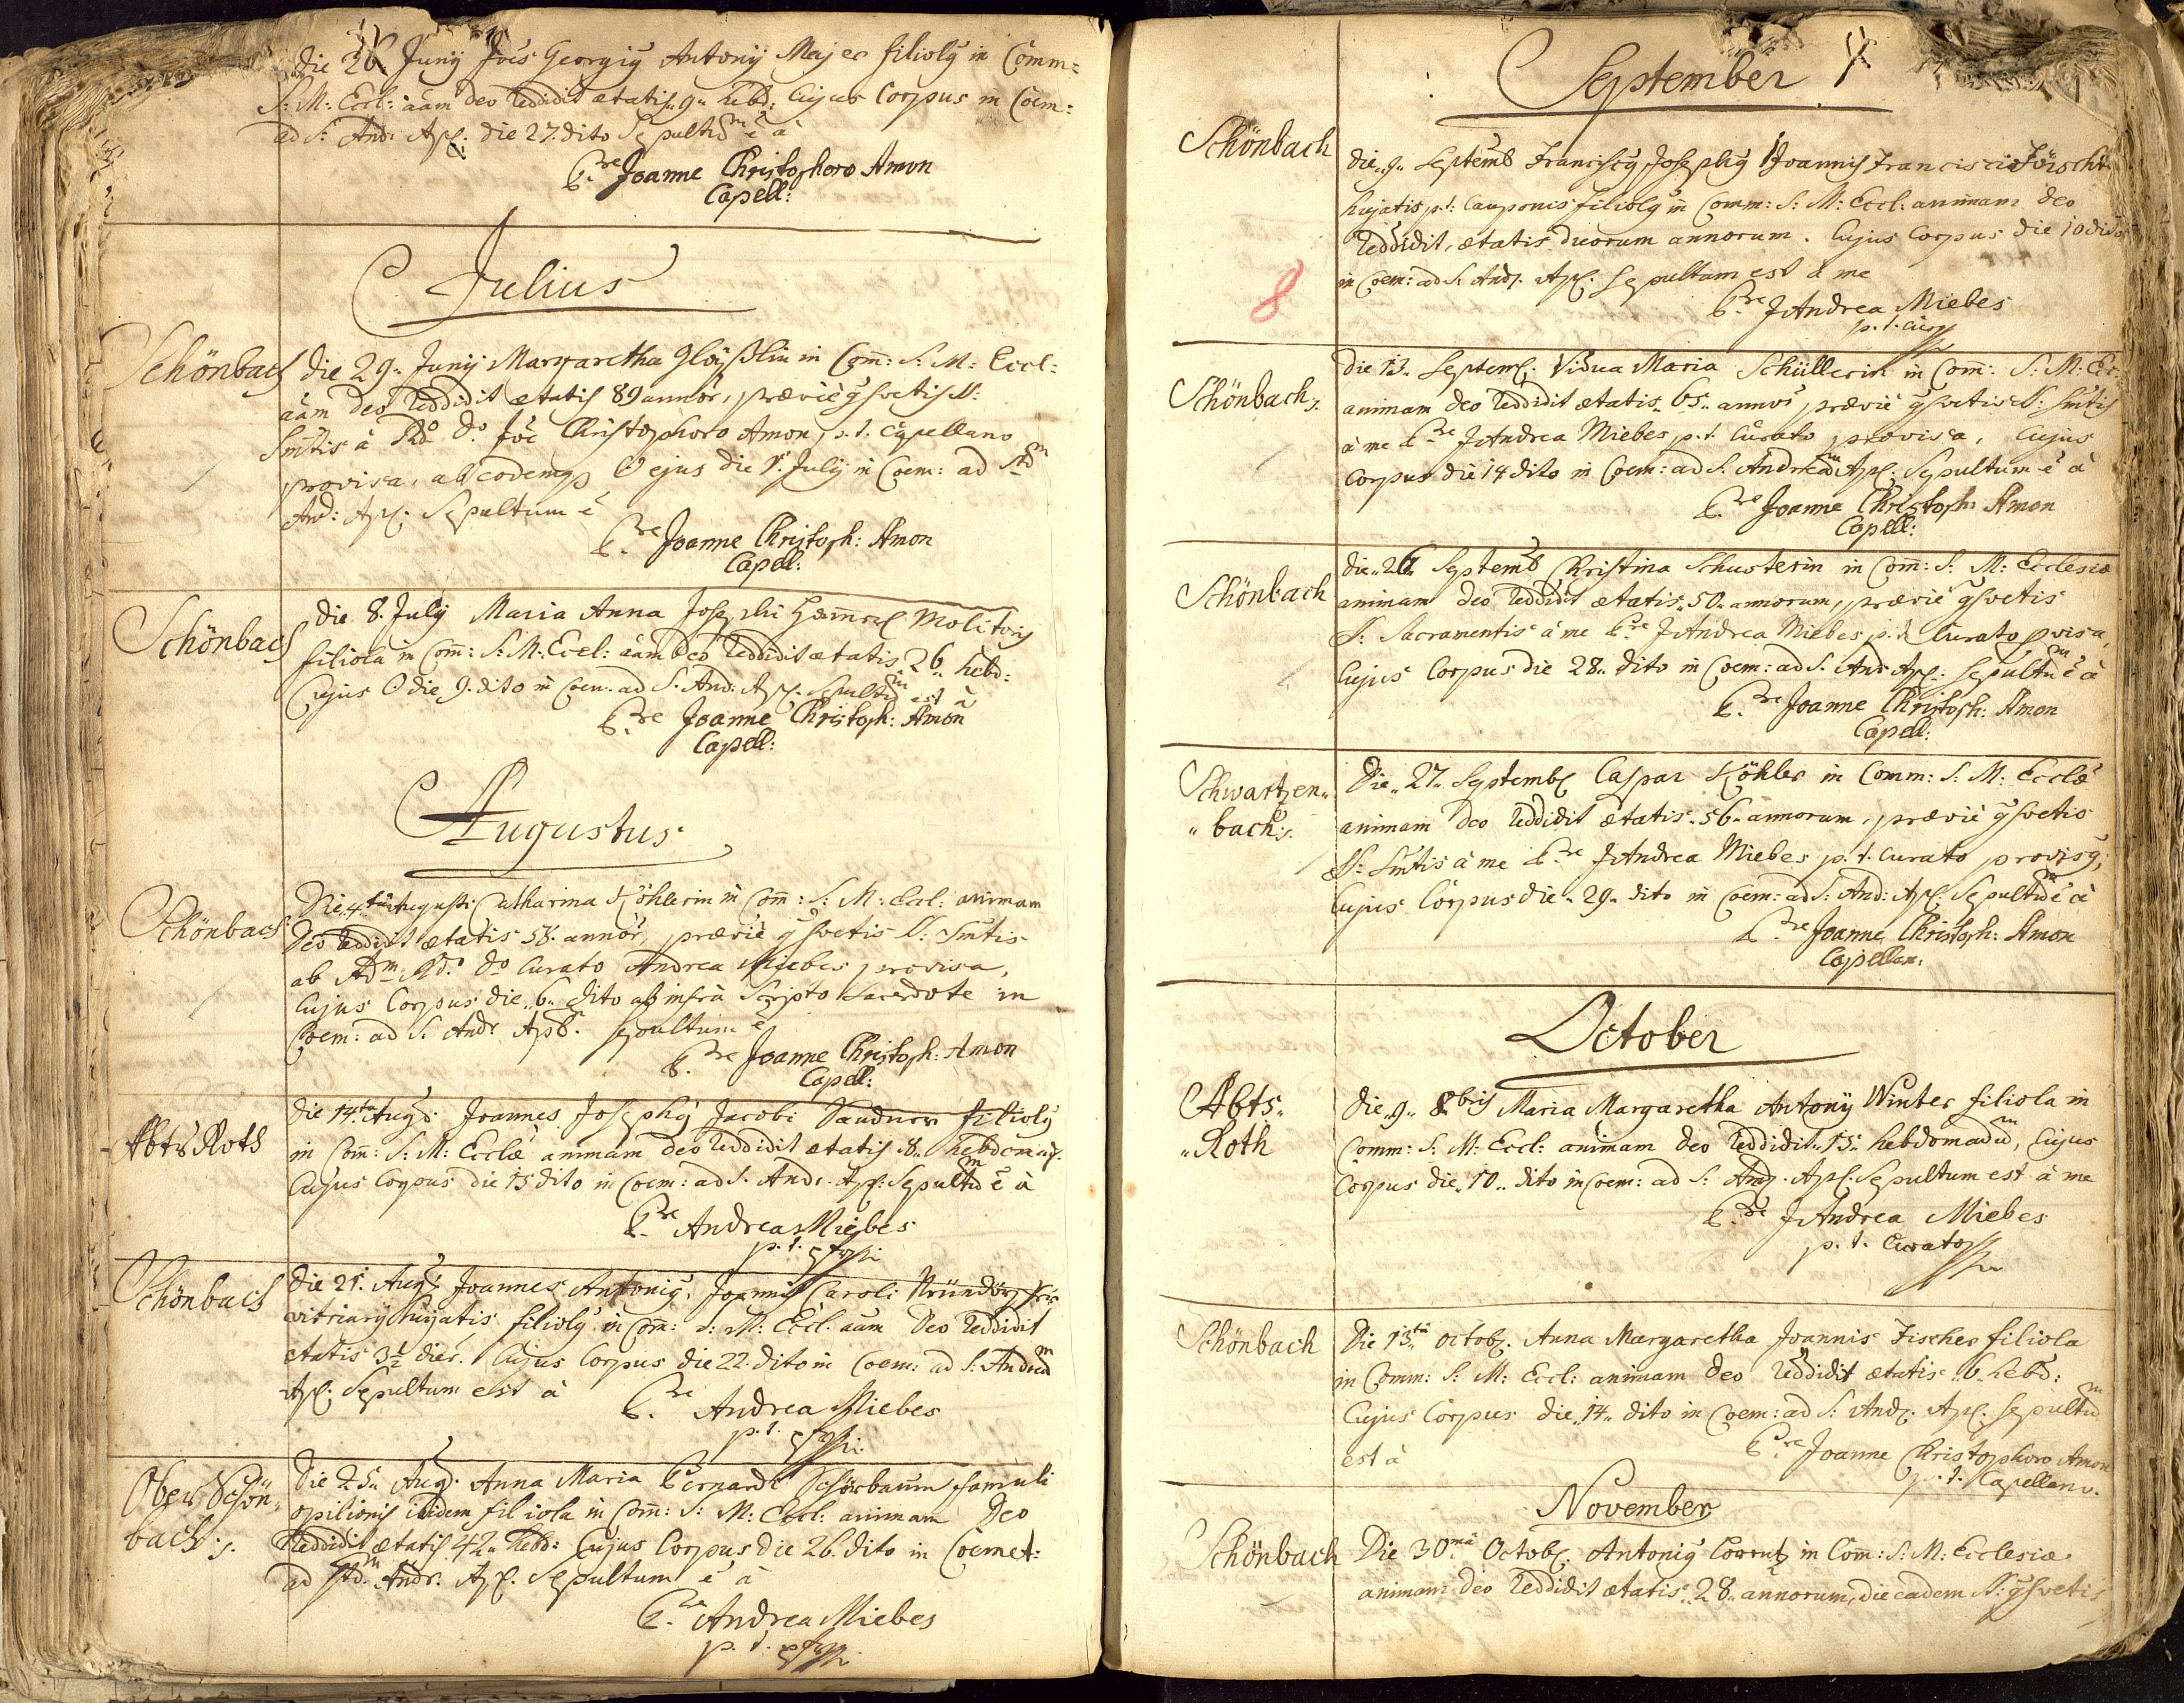 die 26 Junÿ Joēs Georgiȝ Antonÿ Majer filiolȝ in Comm=
S: M: Eccl: āam deo reddidit ætatis 9 hebd: Cujus Corpus in Coem:
ad S: And: Apl: die 27. dito Sepultū ē à
P:re Joanne Christophoro Amon
Capell:
Julius
Schönbach
die 29. Junÿ Margaretha in Com̄: S: M: Eccl:
āam deo reddidit ætatis 89 annor, prævie qsvetis S:
Smtis à Rdo do Joe Christophoro Amon, p. t. Capellano
provisa, ab eodemq ejus die 1. July in Coem: ad Sdm
And: Apl: Sepultum ē
P:re Joanne Christoph: Amon
Capell:
Schönbach
die 8. July Maria Anna Josephi Molitoris
filiola in Com̄: S: M: Eccl: āam deo reddidit ætatis 26 hebd:
Cujus die 9. dito in Coem: ad S: And: Apl: Sepultū est à
P:re Joanne Christoph: Amon
Capell:
Augustus
Schönbach
Die 4ta Augusti Catharina Köhlerin in Com̄: S: M: Eccl: animam
Deo reddidit ætatis 58. annor, prævie qsvetis S: Smtis
ab Adm Rdo do Curato Andrea Miebes provisa,
Cujus Corpus die 6 dito ab infra Scripto Sacerdote in
Coem: ad S: And: Apl: Sepultum ē
P:re Joanne Christoph: Amon
Capell:
Abts Roth
die 14ta Aug: Joannes Josephȝ Jacobi Sandner filiolȝ
in Com̄: S: M: Ecclæ animam deo reddidit ætatis 8. hebdomad:
Cujus Corpus die 15 dito in Coem: ad S: And: Apl: Sepultū ē à
P:re Andrea Miebes
p. t.
Schönbach
die 21. Aug: Joannes Antoniȝ, Joannis Caroli
vitriarÿ hujatis filiolȝ in Com̄: S: M: Eccl: āam Deo reddidit
ætatis 3½ dier. Cujus Corpus die 22. dito in Coem: ad S: Andreā
Apl: Sepultum est à
P:re Andrea Miebes
p. t.
Ober Schön
bach
Die 25. Aug: Anna Maria Bernardi Schörbaum famuli
opilionis ibidem filiola in Com̄: S: M: Eccl: animam Deo
reddidit ætatis 42 hebd: Cujus Corpus die 26. dito in Cœmet:
ad Sdm Andr: Apl: Sepultum ē à
P:re Andrea Miebes
p. t.
September
Schönbach
die 9 Septemb Franciscȝ Josephȝ Joannis Francisci
hujatis p. t. Cauponis filiolȝ in Comm: S: M: Eccl: animam deo
reddidit, ætatis duorum annorum. Cujus Corpus die 10 dito
in Coem: ad S: And: Apl: Sepultum est à me
P:re J Andrea Miebes
p. t. Cur
8
Schönbach
Die 13. Septem: Vidua Maria Schüllerin in Com̄: S: M: Ec:
animam deo reddidit ætatis 65 annor prævie qsvetis S: Smtis
à me P:re J Andrea Miebes p. t. Curato provisa, Cujus
Corpus die 14 dito in Coem: ad S: Andreā Apl: Sepultum ē à
P:re Joanne Christoph: Amon
Capell:
Schönbach
die 26 Septemb Christina Schusterin in Com̄: S: M: Ecclesiæ
animam deo reddidit ætatis 50 annorum, prævie qsvetis
S: Sacramentis à me P:re J Andrea Miebes p. t. Curato pvisa,
Cujus Corpus die 28 dito in Coem: ad S: And: Apl: Sepultū ē à
P:re Joanne Christoph: Amon
Capell:
Schwartzen
bach
Die 27 Septemb: Caspar Köhler in Comm: S: M: Ecclæ
animam deo reddidit ætatis 56 annorum, prævie qsvetis
S: Smtis à me P:re J Andrea Miebes p. t. Curato provisȝ,
Cujus Corpus die 29 dito in Coem: ad S: And: Apl: Sepultū ē à
P:re Joanne Christoph: Amon
Capellan:
October
Abts
Roth
die 9 8bris Maria Margaretha Antonÿ Winter filiola in
Comm: S: M: Eccl: animam deo reddidit 15 hebdomadū, Cujus
Corpus die 10 dito in Coem: ad S: And: Apl: Sepultum est à me
P:re J Andrea Miebes
p. t. Curato
Schönbach
Die 13ta Octob: Anna Margaretha Joannis Fischer filiola
in Comm: S: M: Eccl: animam deo reddidit ætatis 6 hebd:
Cujus Corpus die 14 dito in Coem: ad S: And: Apl: Sepultū
est à
P:re Joanne Christophoro Amon
p. t. Capellano.
November
Schönbach
Die 30ma Octob: Antoniȝ in Com̄: S: M: Ecclesiæ
animam deo reddidit ætatis 28 annorum, die eadem S: qsvetis